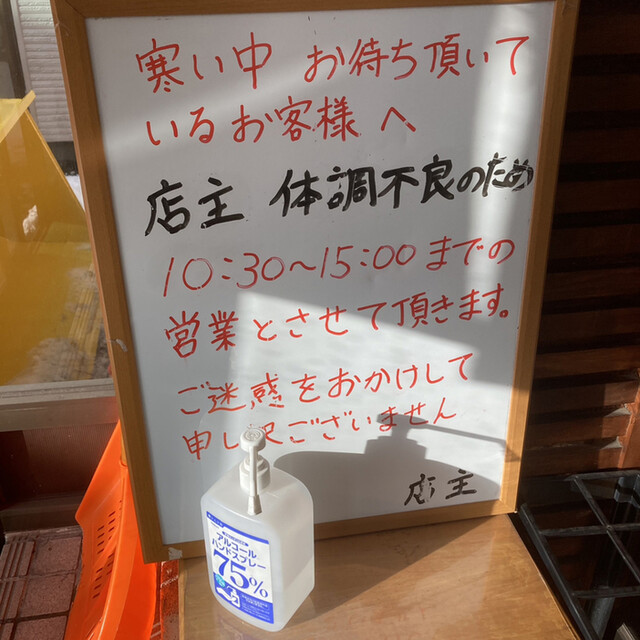 寒い中 お待ち頂いて
いるお客様へ
店主 体調不良のため
10:30〜15:00までの
営業とさせて頂きます。
ご迷惑をおかけして
申し訳ございません
店主
アルコール
ハンドスプレー
75%